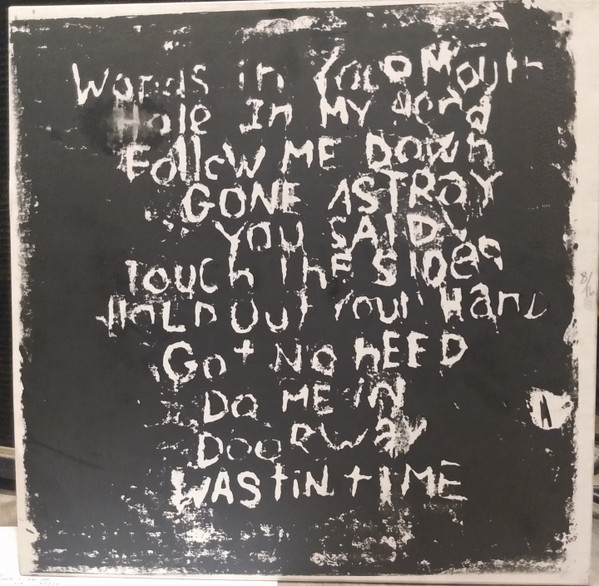 Words in Your Mouth
Hole In MY Head
Follow ME Down
GONE ASTRAY
You SAID
Touch The Sides
Hold Out Your Hand
Got No NEED
Do ME iN
DooRway
WAStiN tIME
8/
16